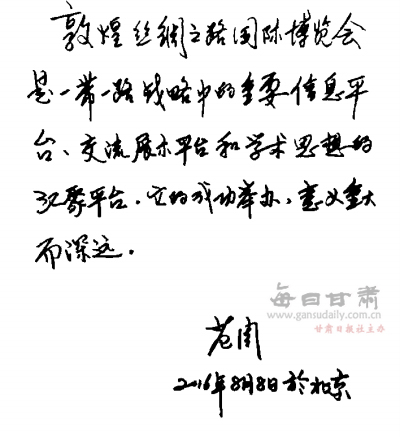 敦煌丝绸之路国际博览会
是一带一路战略中的重要信息平
台、交流展示平台和学术思想的
汇聚平台。它的成功举办，意义重大
而深远。
每日甘肃
www.gansudaily.com.cn
甘肃日报社主办
范周
2016年8月8日於北京